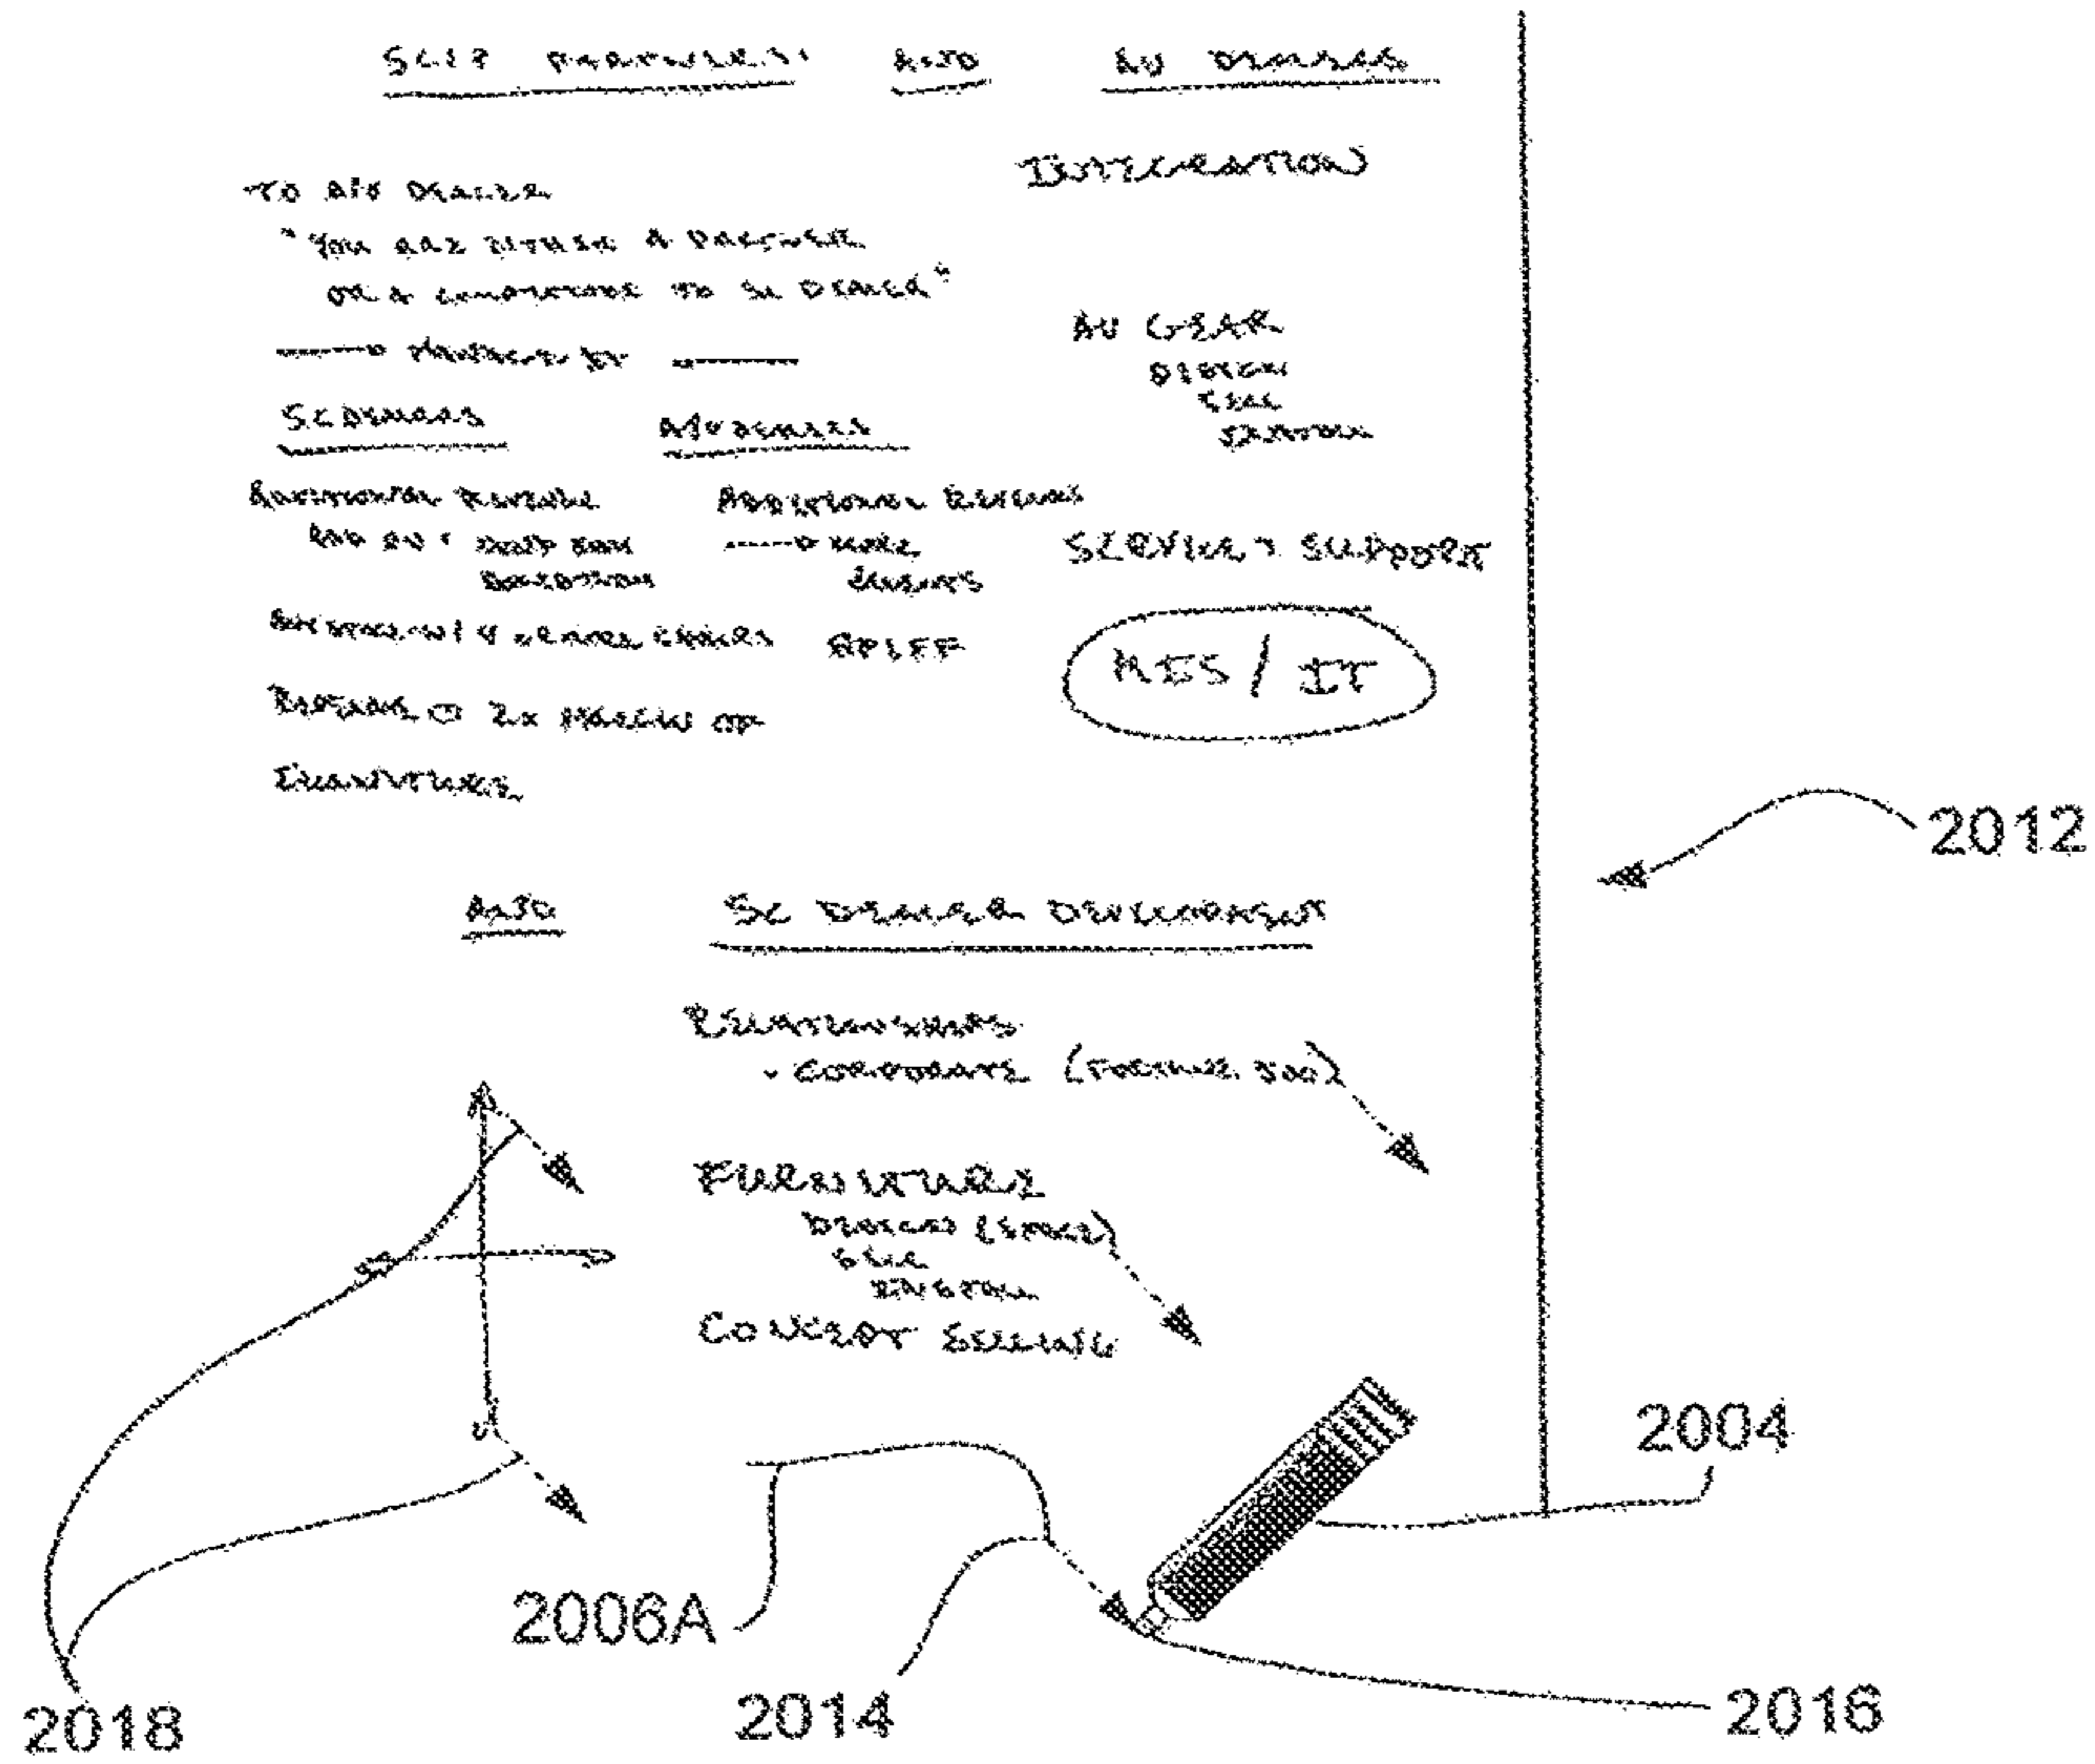 AND
AV DEALERS
INTEGRATION
TO A/V DEALER
"YOU ARE EITHER A PARTNER
OR A COMPETITOR TO SC DEALER"
AV GEAR
DESIGN
SELL
INSTALL
SC DEALERS
A/V DEALERS
ADDITIONAL REVENUE
ADDITIONAL REVENUE
MORE
CLIENTS
SERVICE + SUPPORT
SPIFF
MIS / IT
2X MARGIN OF
FURNITURE
2012
AND SC DEALER DEVELOPMENT
RELATIONSHIPS
- CORPORATE (FORTUNE 500)
FURNITURE
DESIGN (SPACE)
SELL
INSTALL
CONCEPT SELLING
2004
2006A
2014
2016
2018